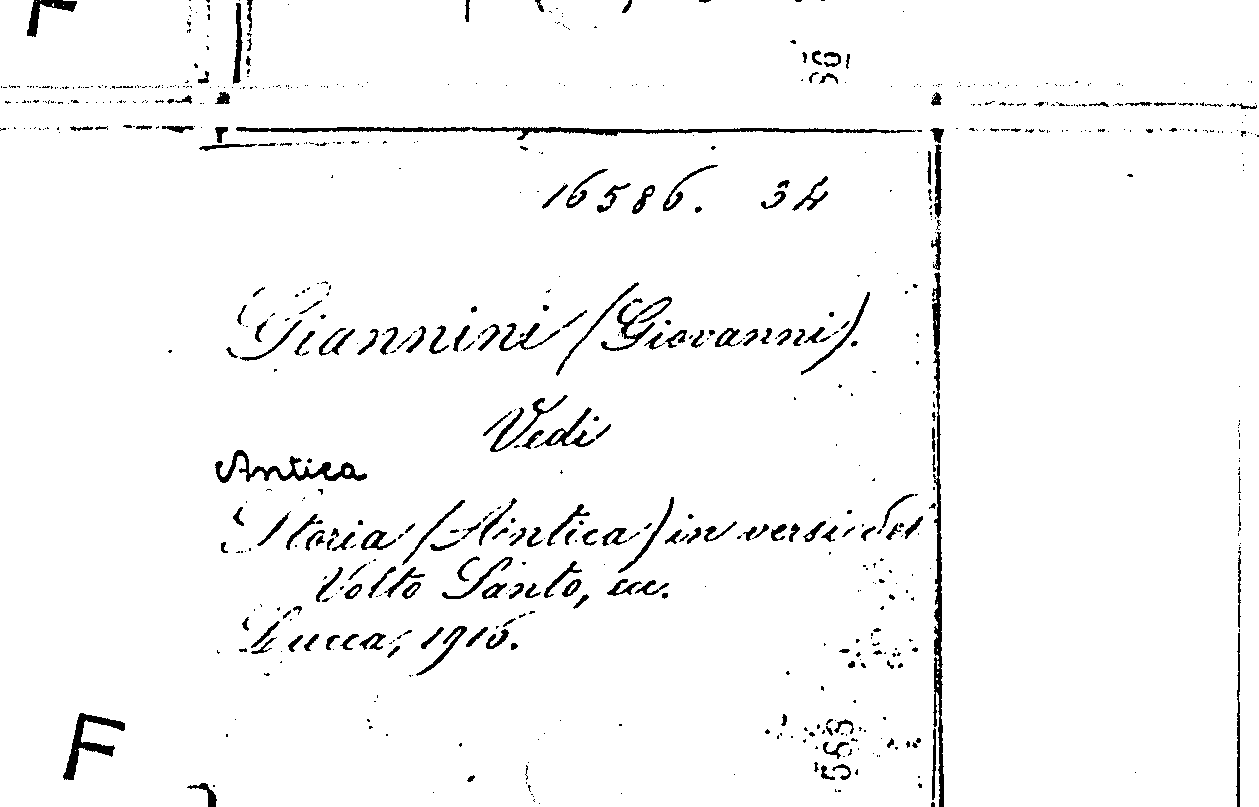 F
16586. 34
Giannini (Giovanni).
Vedi
Antica
Storia (Antica) in versi del
Volto Santo, ecc.
Lucca, 1916.
F
568